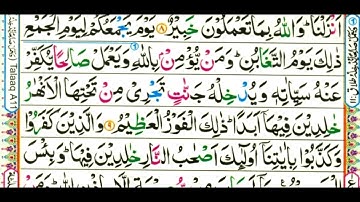 اَنْزَلْنَا ؕ وَاللّٰهُ بِمَا تَعْمَلُوْنَ خَبِيْرٌ ۝۸ يَوْمَ يَجْمَعُكُمْ لِيَوْمِ الْجَمْعِ
ذٰلِكَ يَوْمُ التَّغَابُنِ ؕ وَمَنْ يُّؤْمِنْۢ بِاللّٰهِ وَيَعْمَلْ صَالِحًا يُّكَفِّرْ
عَنْهُ سَيِّاٰتِهٖ وَيُدْخِلْهُ جَنّٰتٍ تَجْرِىْ مِنْ تَحْتِهَا الْاَنْهٰرُ
خٰلِدِيْنَ فِيْهَاۤ اَبَدًا ؕ ذٰلِكَ الْفَوْزُ الْعَظِيْمُ ۝۹ وَالَّذِيْنَ كَفَرُوْا
وَكَذَّبُوْا بِاٰيٰتِنَاۤ اُولٰٓئِكَ اَصْحٰبُ النَّارِ خٰلِدِيْنَ فِيْهَا ؕ وَبِئْسَ